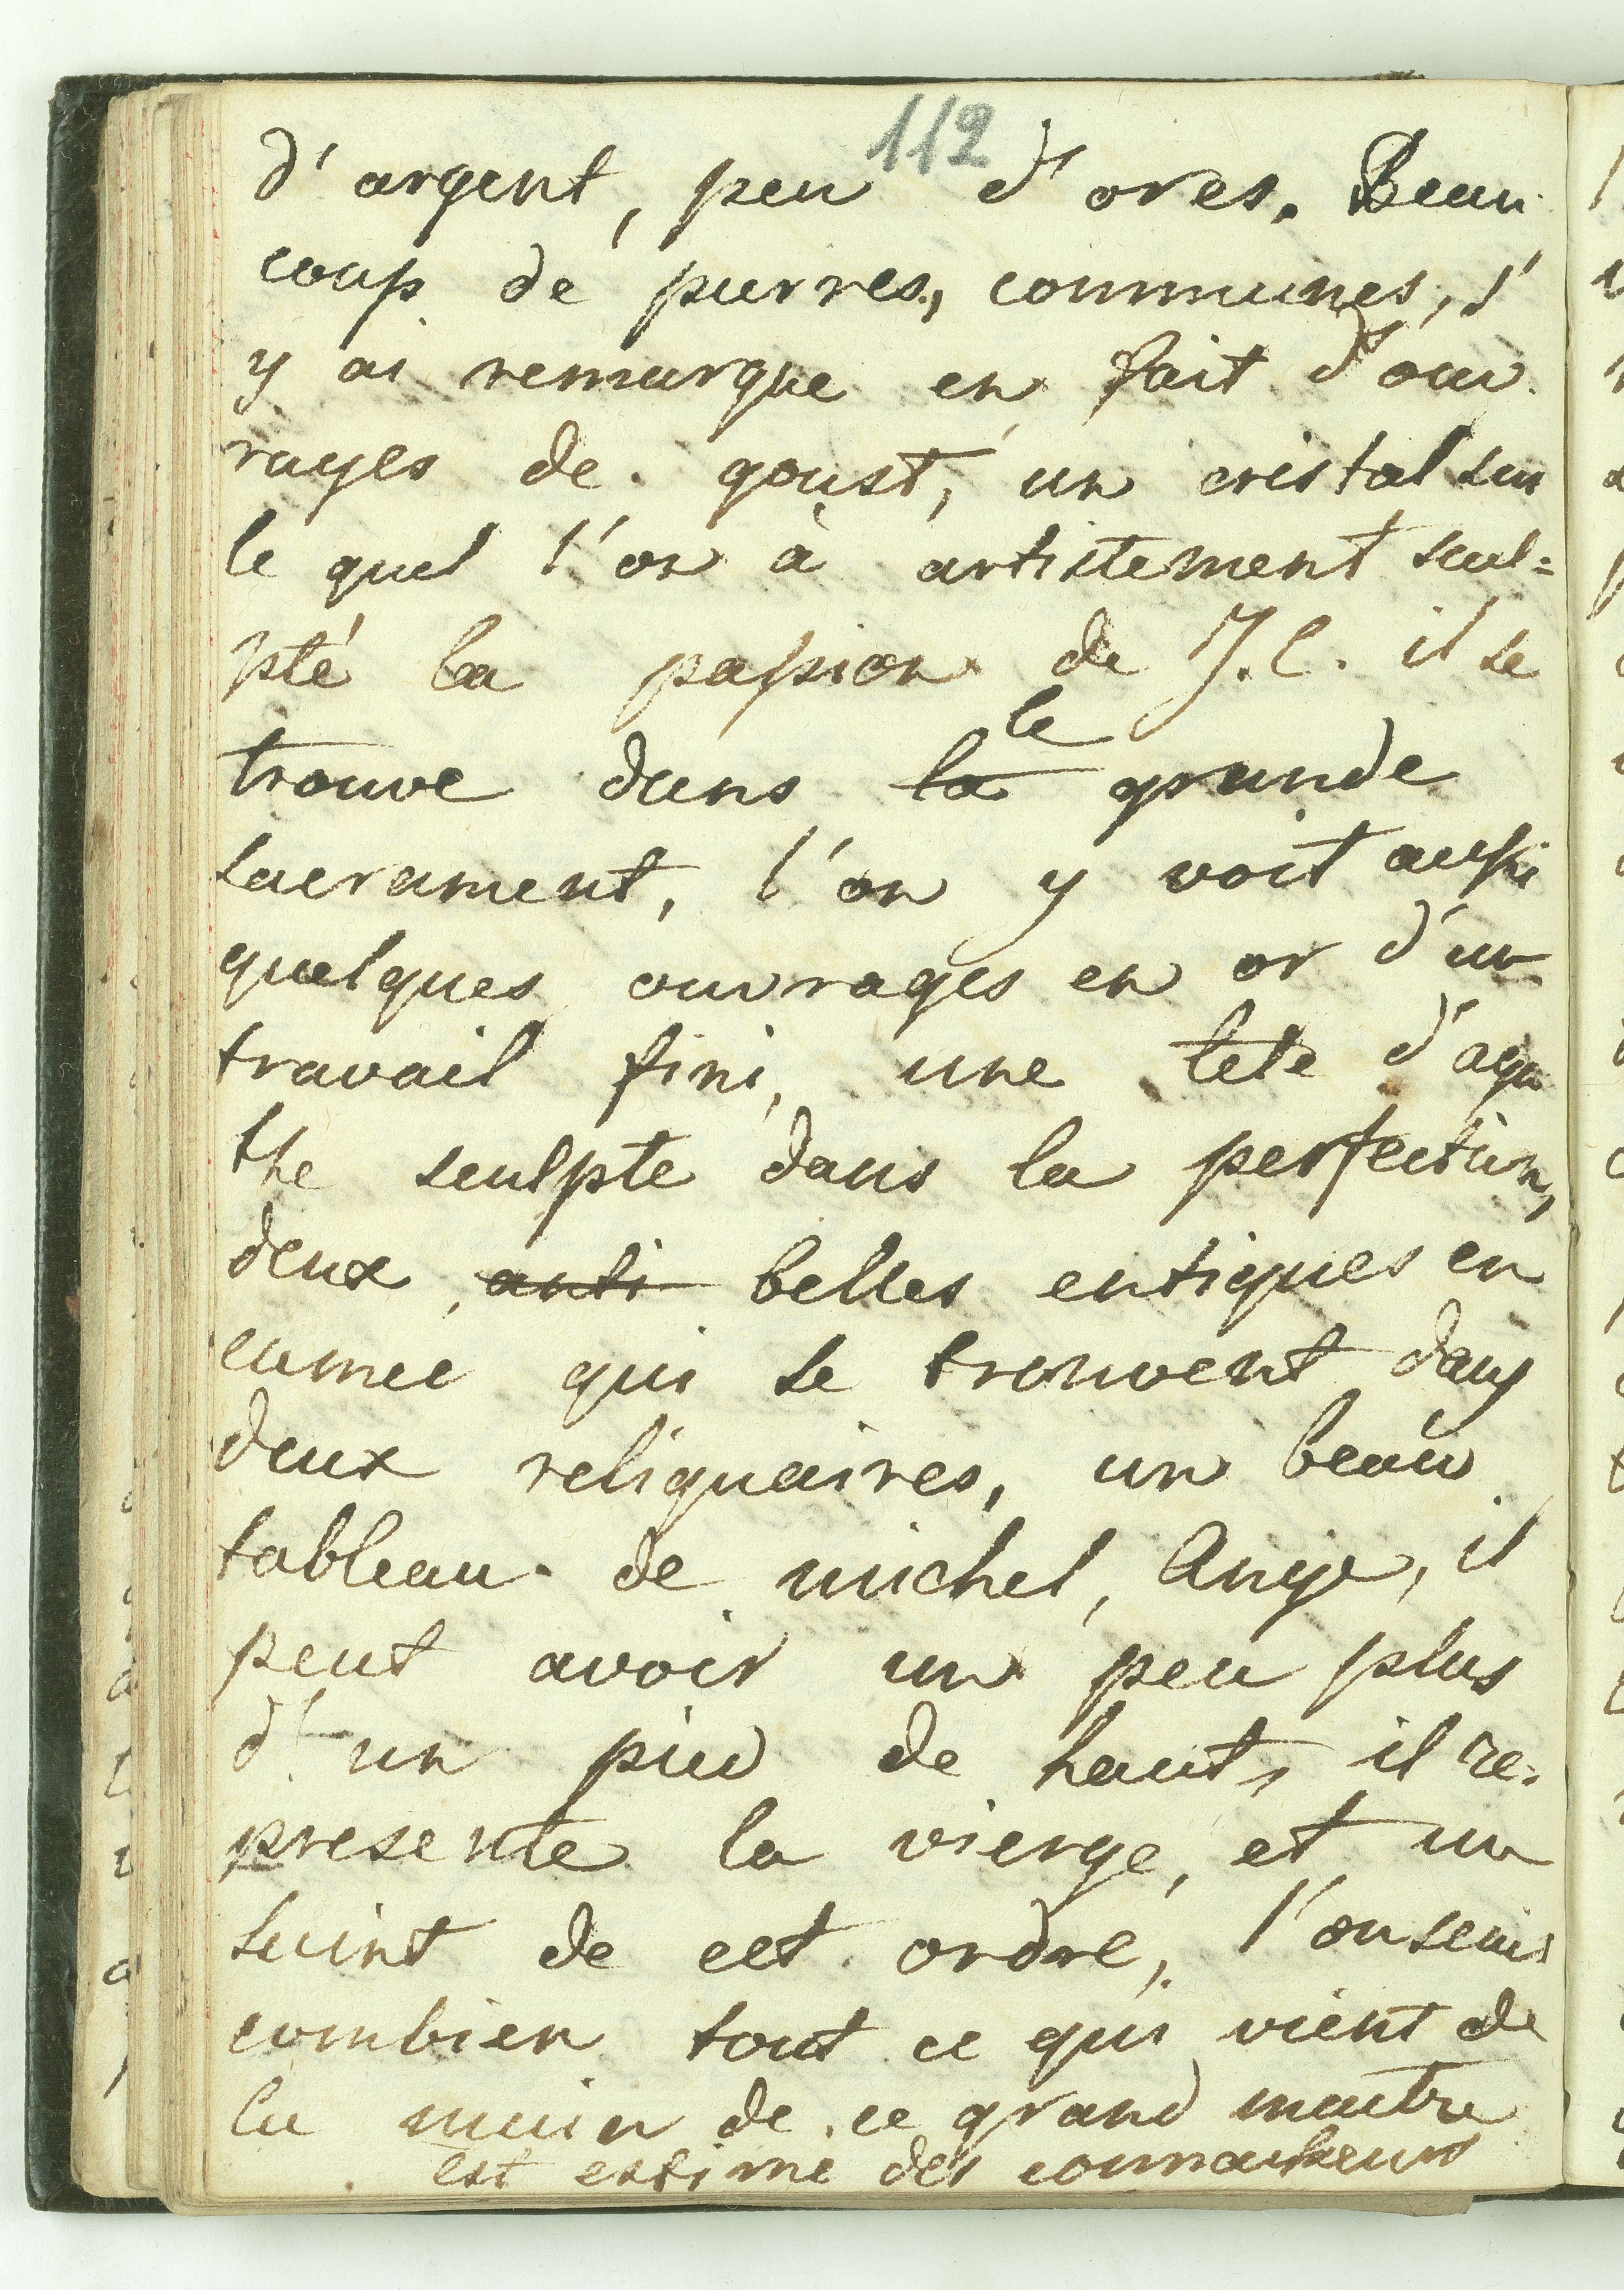 112
d'argent, peu d'ores. Beau
coup de pierres, communes, j'
y ai remarque en fait d'ouv
rages de goust, un cristal sur
le quel l'on à artistement scul=
pté la passion de J.C. il se
trouve dans la le grande
sacrament, l'on y voit aussi
quelques ouvrages en or d'un
travail fini, une tete d'aga
the sculpte dans la perfection,
deux anti belles entiques en
camee qui se trouvent dans
deux reliquaires, un beau
tableau de michel, Ange, il
peut avoir un peu plus
d'un pied de haut, il re-
presente la vierge, et un
saint de cet ordre, l'on scais
combien tout ce qui vient de
la main de ce grand maitre
est estime des connaiseurs